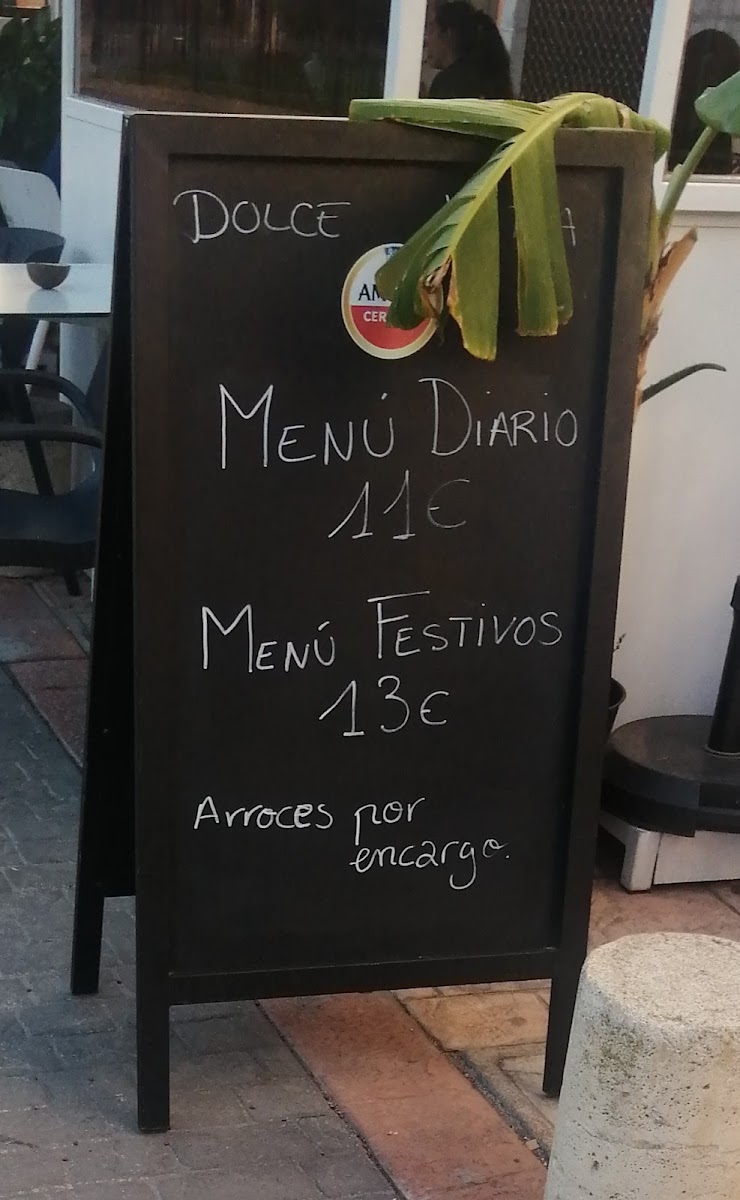 DOLCE
MENÚ DIARIO
11€
MENÚ FESTIVOS
13€
Arroces por
encargo.